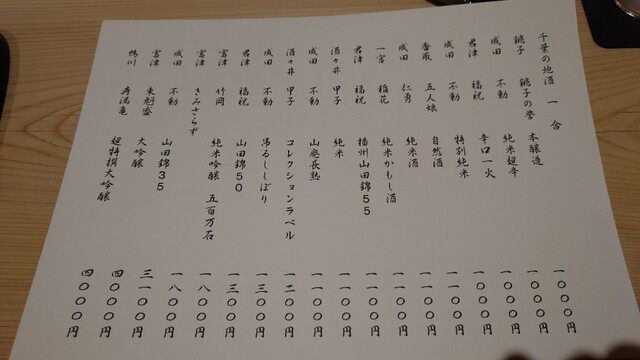 千葉の地酒 一合
銚子 銚子の誉 本醸造 一〇〇〇円
成田 不動 純米超辛 一〇〇〇円
君津 福祝 辛口一火 一〇〇〇円
成田 不動 特別純米 一〇〇〇円
香取 五人娘 自然酒 一一〇〇円
成田 仁勇 純米酒 一一〇〇円
一宮 稲花 純米かもし酒 一一〇〇円
君津 福祝 播州山田錦55 一一〇〇円
酒々井 甲子 純米 一一〇〇円
成田 不動 山廃長熟 一一〇〇円
酒々井 甲子 コレクションラベル 一二〇〇円
成田 不動 吊るししぼり 一三〇〇円
君津 福祝 山田錦50 一三〇〇円
富津 竹岡 純米吟醸 五百万石 一八〇〇円
富津 きみさらず 一八〇〇円
成田 不動 山田錦35 三一〇〇円
富津 東魁盛 大吟醸 四〇〇〇円
鴨川 寿萬亀 超特撰大吟醸 四〇〇〇円